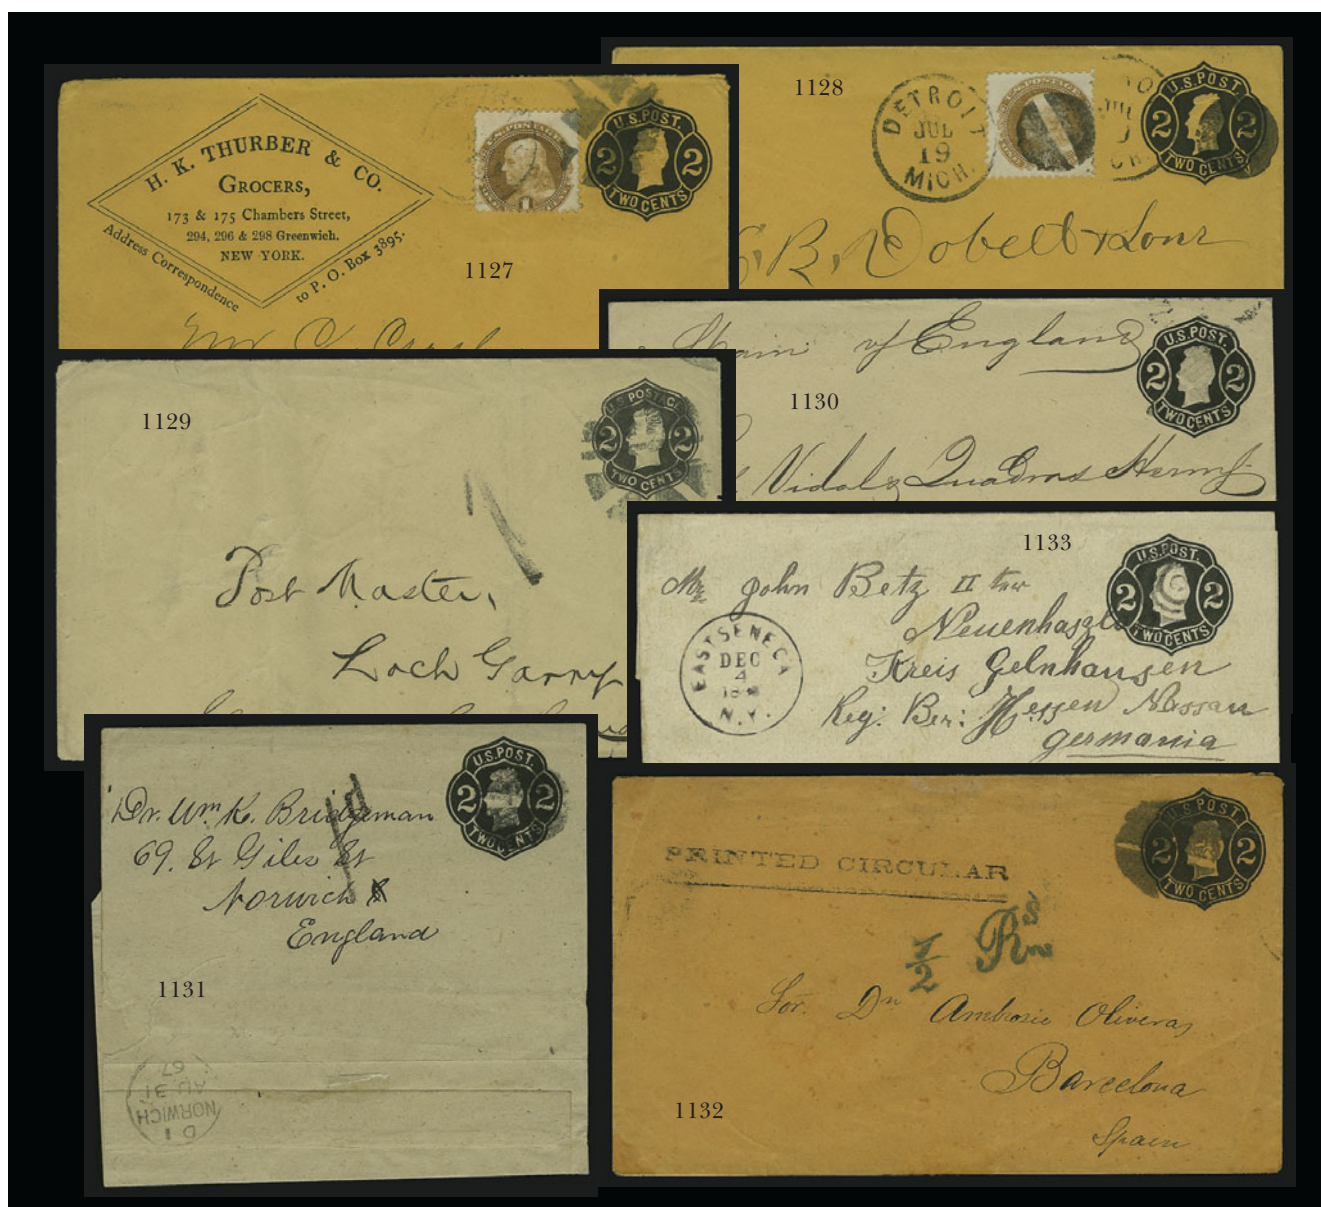 H. K. THURBER & CO.
GROCERS,
173 & 175 Chambers Street,
294, 296 & 298 Greenwich,
NEW YORK.
Address Correspondence
to P. O. Box 3895.
1
U.S. POST.
2 2
TWO CENTS
1127
Mr C.
1128
DETROIT
JUL
19
MICH.
U.S. POST.
2 2
TWO CENTS
B. & Sons
1129
U.S. POSTAGE
2 2
TWO CENTS
Post Master,
Loch Garry
of England
1130
U.S. POST.
2 2
TWO CENTS
Vidal Quadras
1133
U.S. POST.
2 2
TWO CENTS
Mr John Betz II
EAST SENECA
DEC
4
N.Y.
Kreis Gelnhausen
Reg: Bez: Hessen Nassau
Germania
U.S. POST.
2 2
TWO CENTS
Dr. Wm K. Bridgeman
69. St Giles St
Norwich
England
1131
NORWICH
AU 31
67
U.S. POST
2 2
TWO CENTS
PRINTED CIRCULAR
1/2 Rs
Sor. Dn Ambrosio Oliveras
Barcelona
Spain
1132